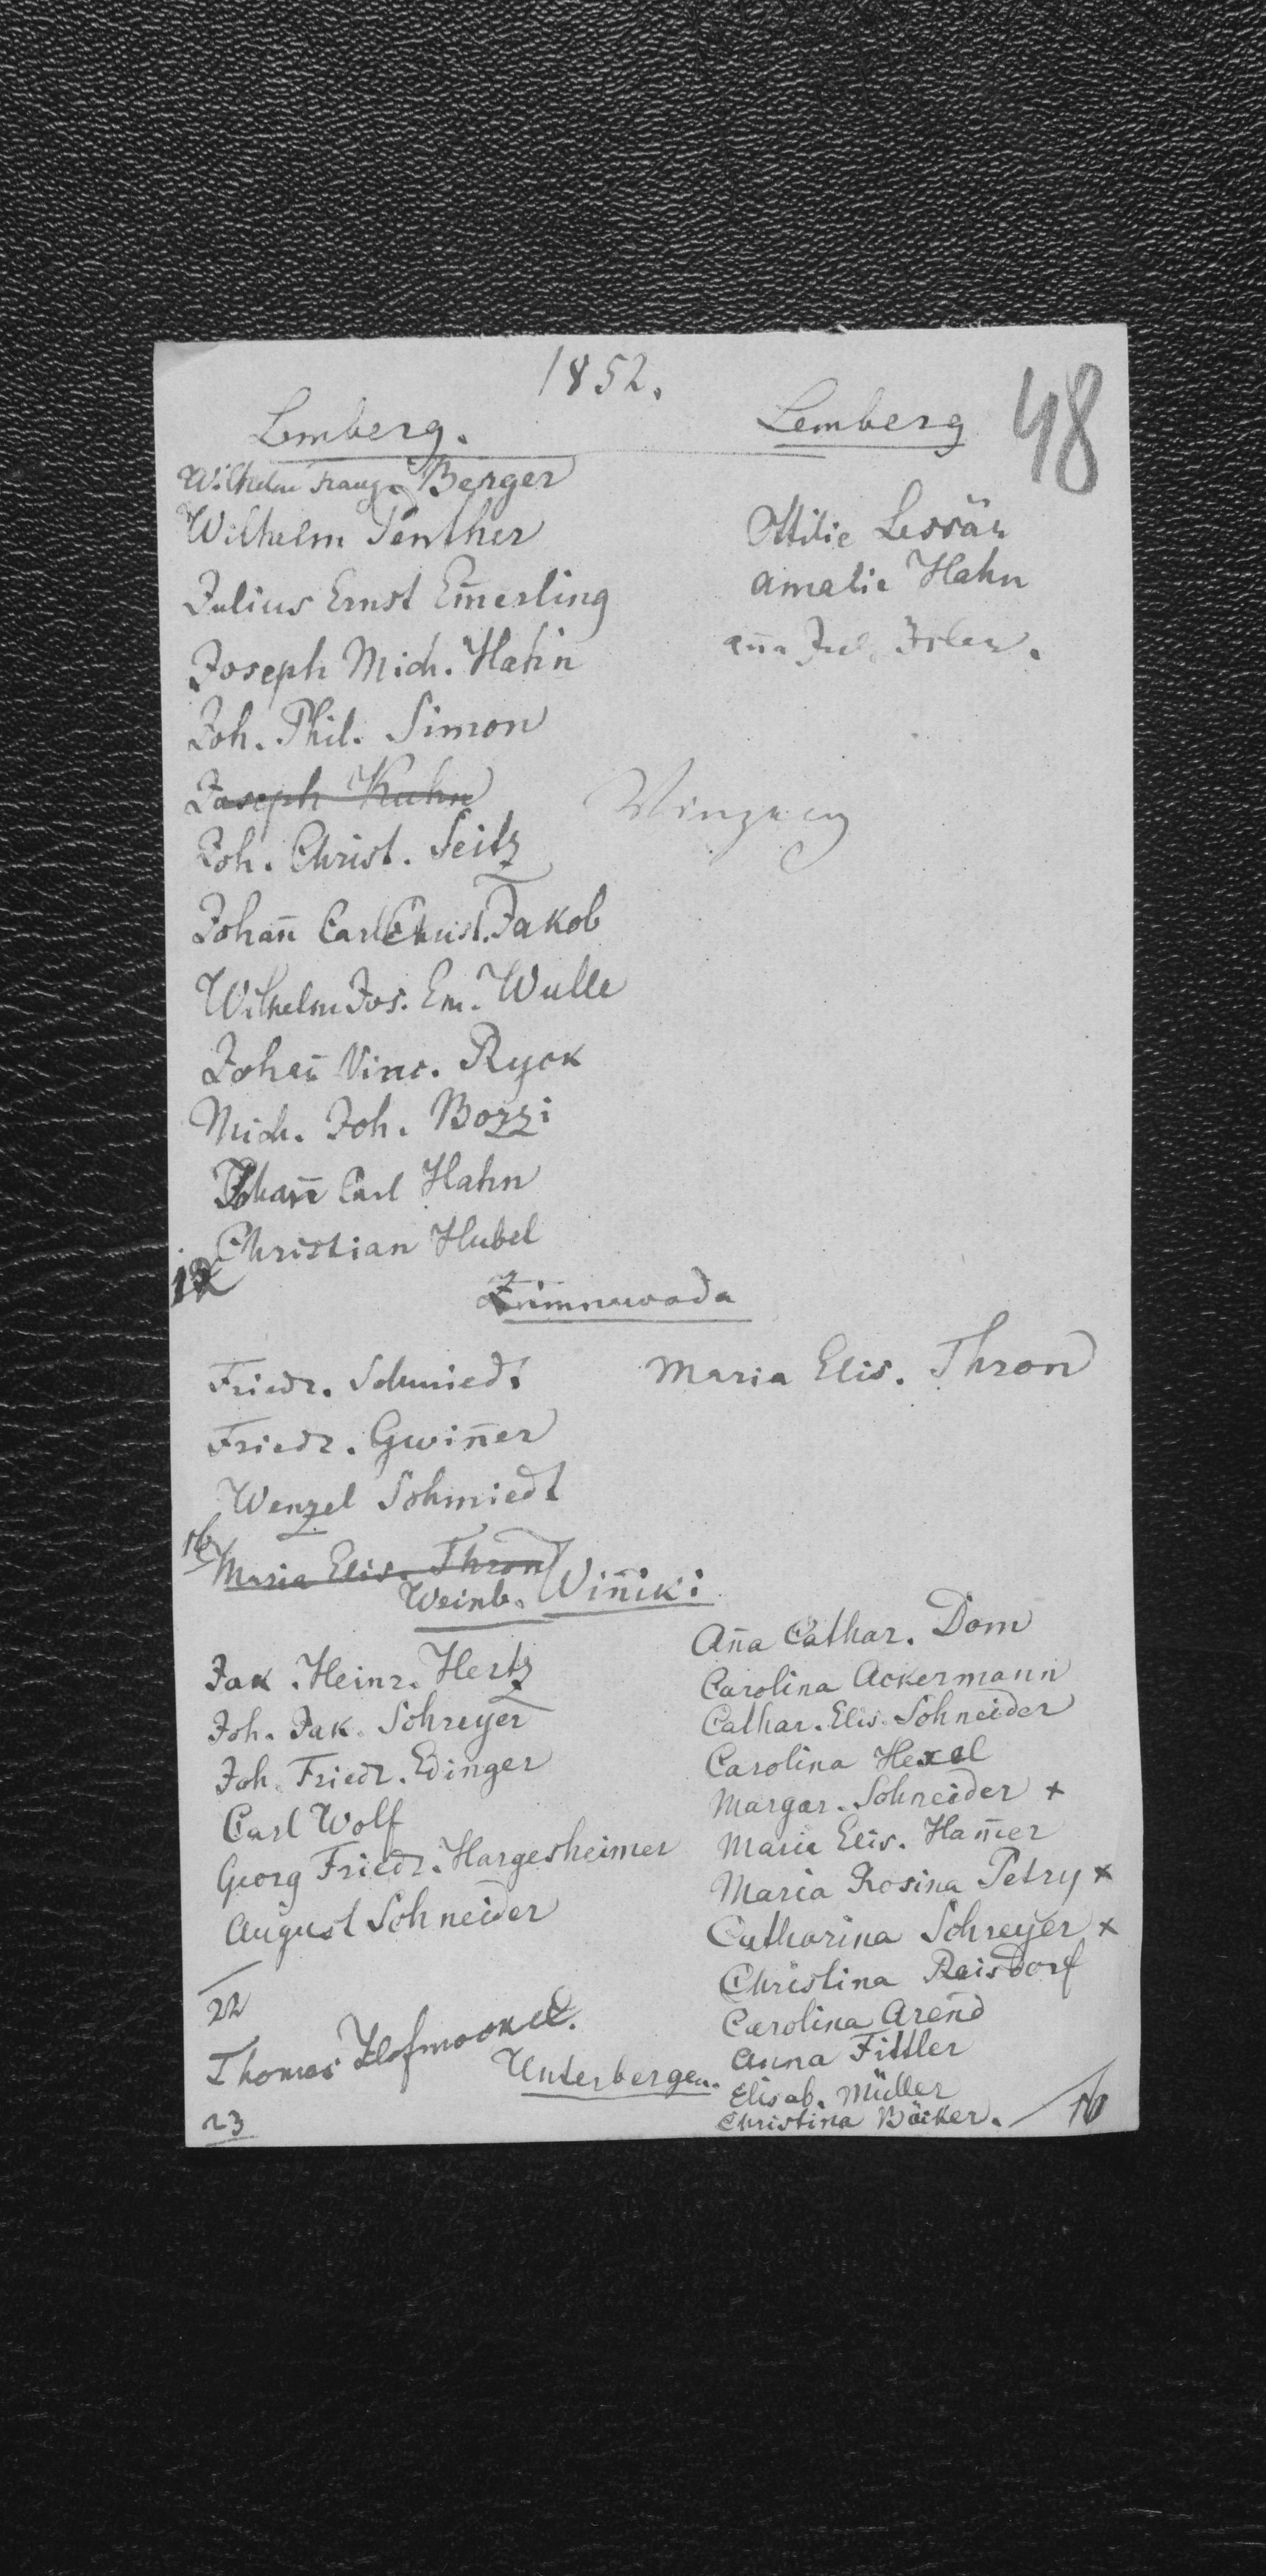 1852.
48
Lemberg.
Wilhelm Franz. Berger
Wilhelm Penther
Julius Ernst Em̄erling
Joseph Mich. Hahn
Joh. Phil. Simon
Joseph Kuhn
Joh. Christ. Seitz
Johan̄ Carl Christ. Jakob
Wilhelm Jos. Em. Wulle
Johan̄ Vinc. Ryck
Mich. Joh. Bozzi
Johan̄ Carl Hahn
Christian Hubel
Lemberg
Ottilie Lessär
Amalie Hahn
An̄a Jul.
Zimnawoda
Friedr. Schmiedt
Friedr. Gwin̄er
Wenzel Schmiedt
16
Maria Elis. Thron
Maria Elis. Thron
Weinb. Win̄iki
Jak. Heinr. Hertz
Joh. Jak. Schreyer
Joh. Friedr. Edinger
Carl Wolf
Georg Friedr. Hargesheimer
August Schneider
22
Thomas
Unterbergen.
23
An̄a Cathar. Dom
Carolina Ackermann
Cathar. Elis. Schneider
Carolina Hexel
Margar. Schneider x
Maria Elis. Ham̄er
Maria Rosina Petry x
Catharina Schreyer x
Christina Reisdorf
Carolina Arend
Anna Fittler
Elisab. Müller
Christina Bäcker. 16